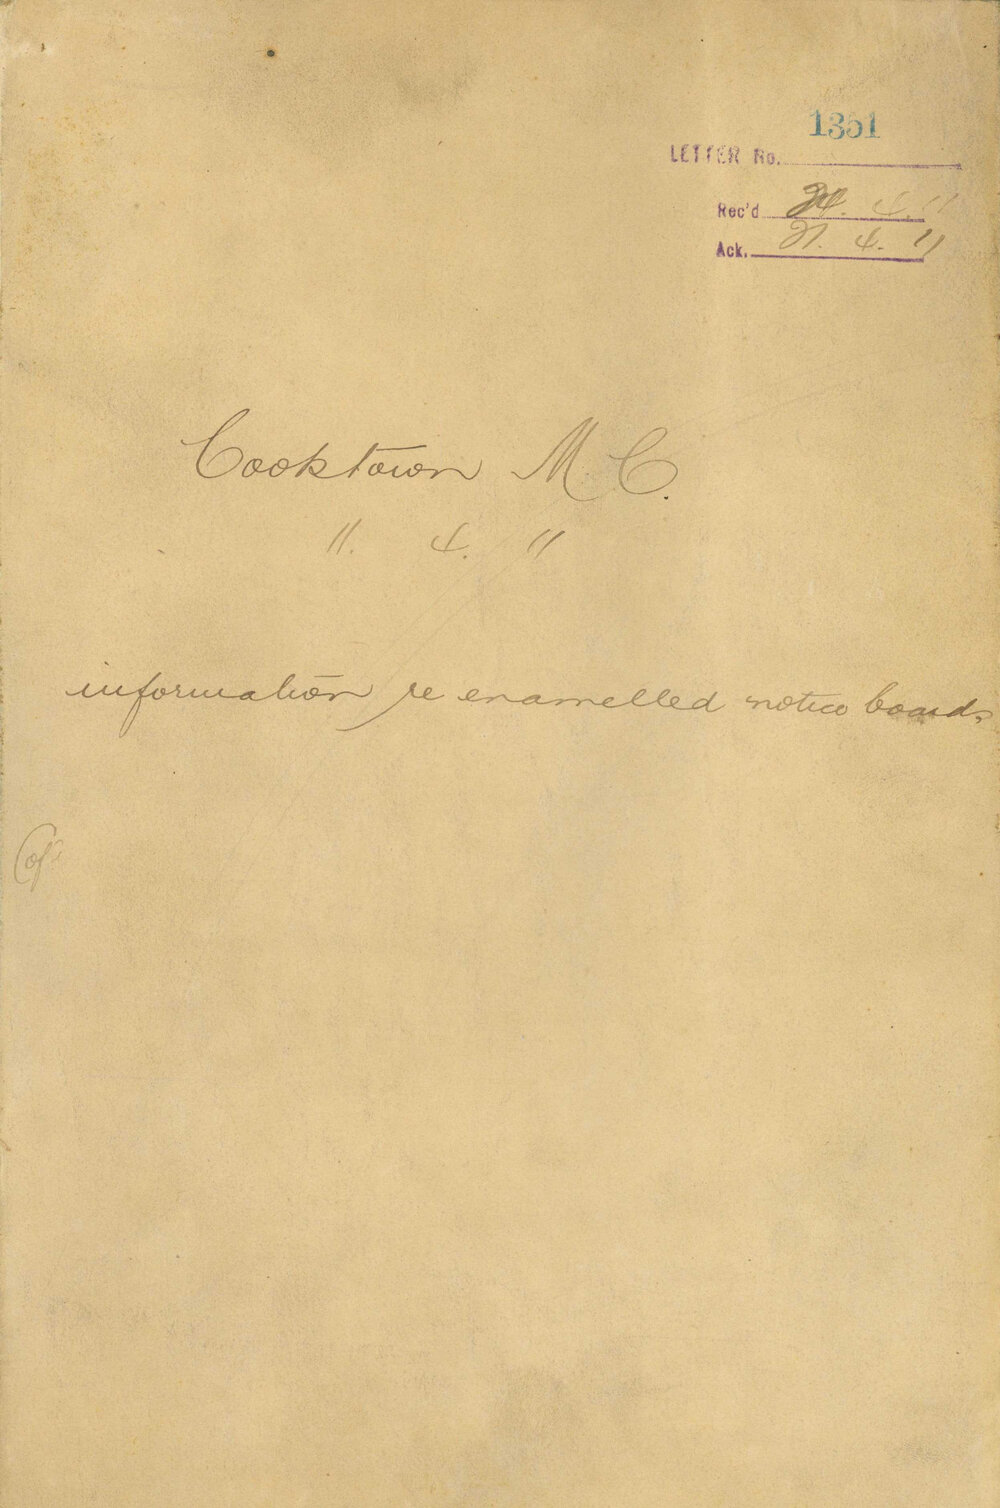 1351
LETTER No.
Rec'd 4. 11
Ack. 21. 4. 11
Cooktown M. C.
11. 4. 11
information re enamelled notice boards